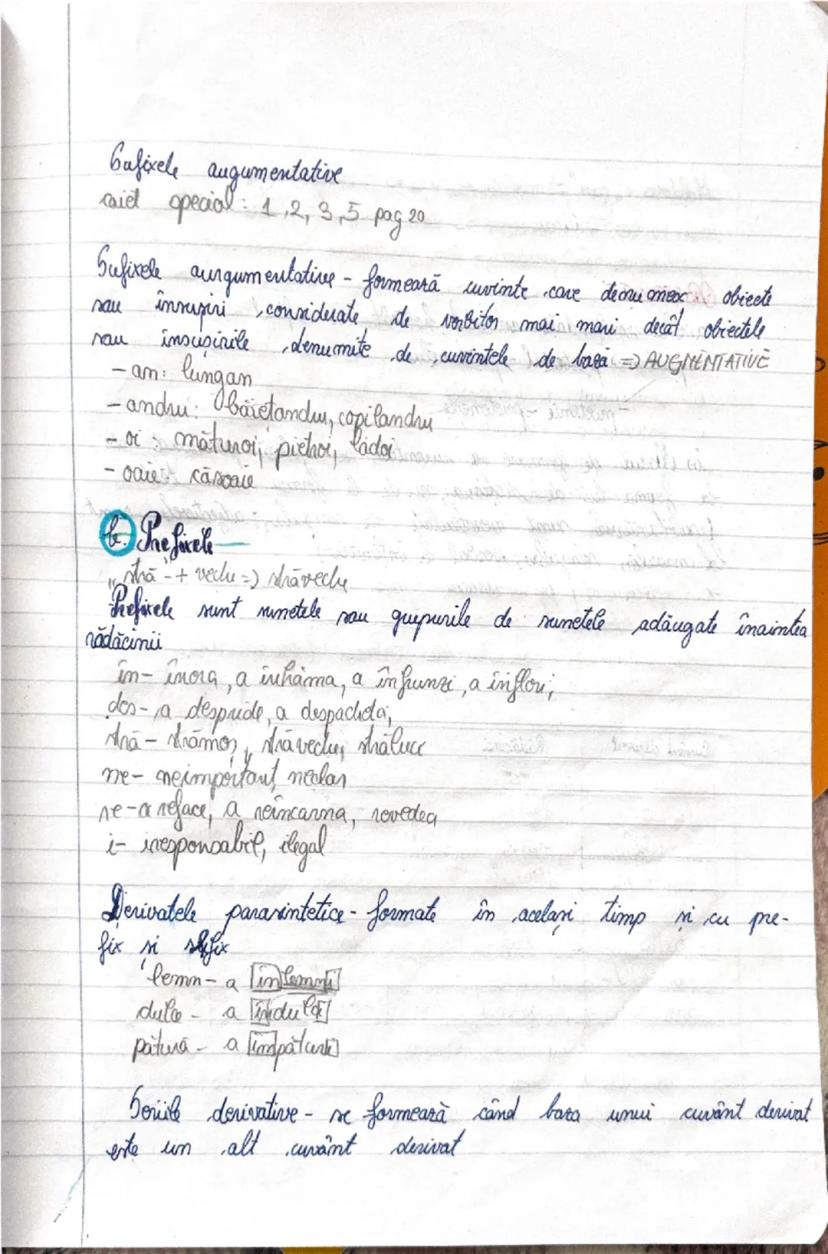 Sufixele augumentative
caiet special: 1, 2, 3, 5 pag 20
Sufixele aurgumentative - formează cuvinte care denumesc obiecte
sau însușiri considerate de vorbitor mai mari decât obiectele
sau însușirile denumite de cuvintele de bază => AUGMENTATIVE
- an: lungan
- andru: băiețandru, copilandru
- oi: măturoi, pietroi, lădoi
- oaie căsoaie
b. Prefixele
"stră" + vechi => străvechi
Prefixele sunt sunetele sau grupurile de sunetele adăugate înaintea
rădăcinii
în- înora, a înhăma, a înfrunzi, a înflori,
des- a desprinde, a despacheta,
stră - strămoș, străvechi, străluci
ne- neimportant, neclar
re- a reface, a reîncarna, revedea
i- iresponsabil, ilegal
Derivatele parasintetice - formate în același timp și cu pre-
fix si sufix
lemn - a înlemni
dulce - a îndulci
pătură - a împături
Seriile derivative - se formează când baza unui cuvânt derivat
este un alt cuvânt derivat